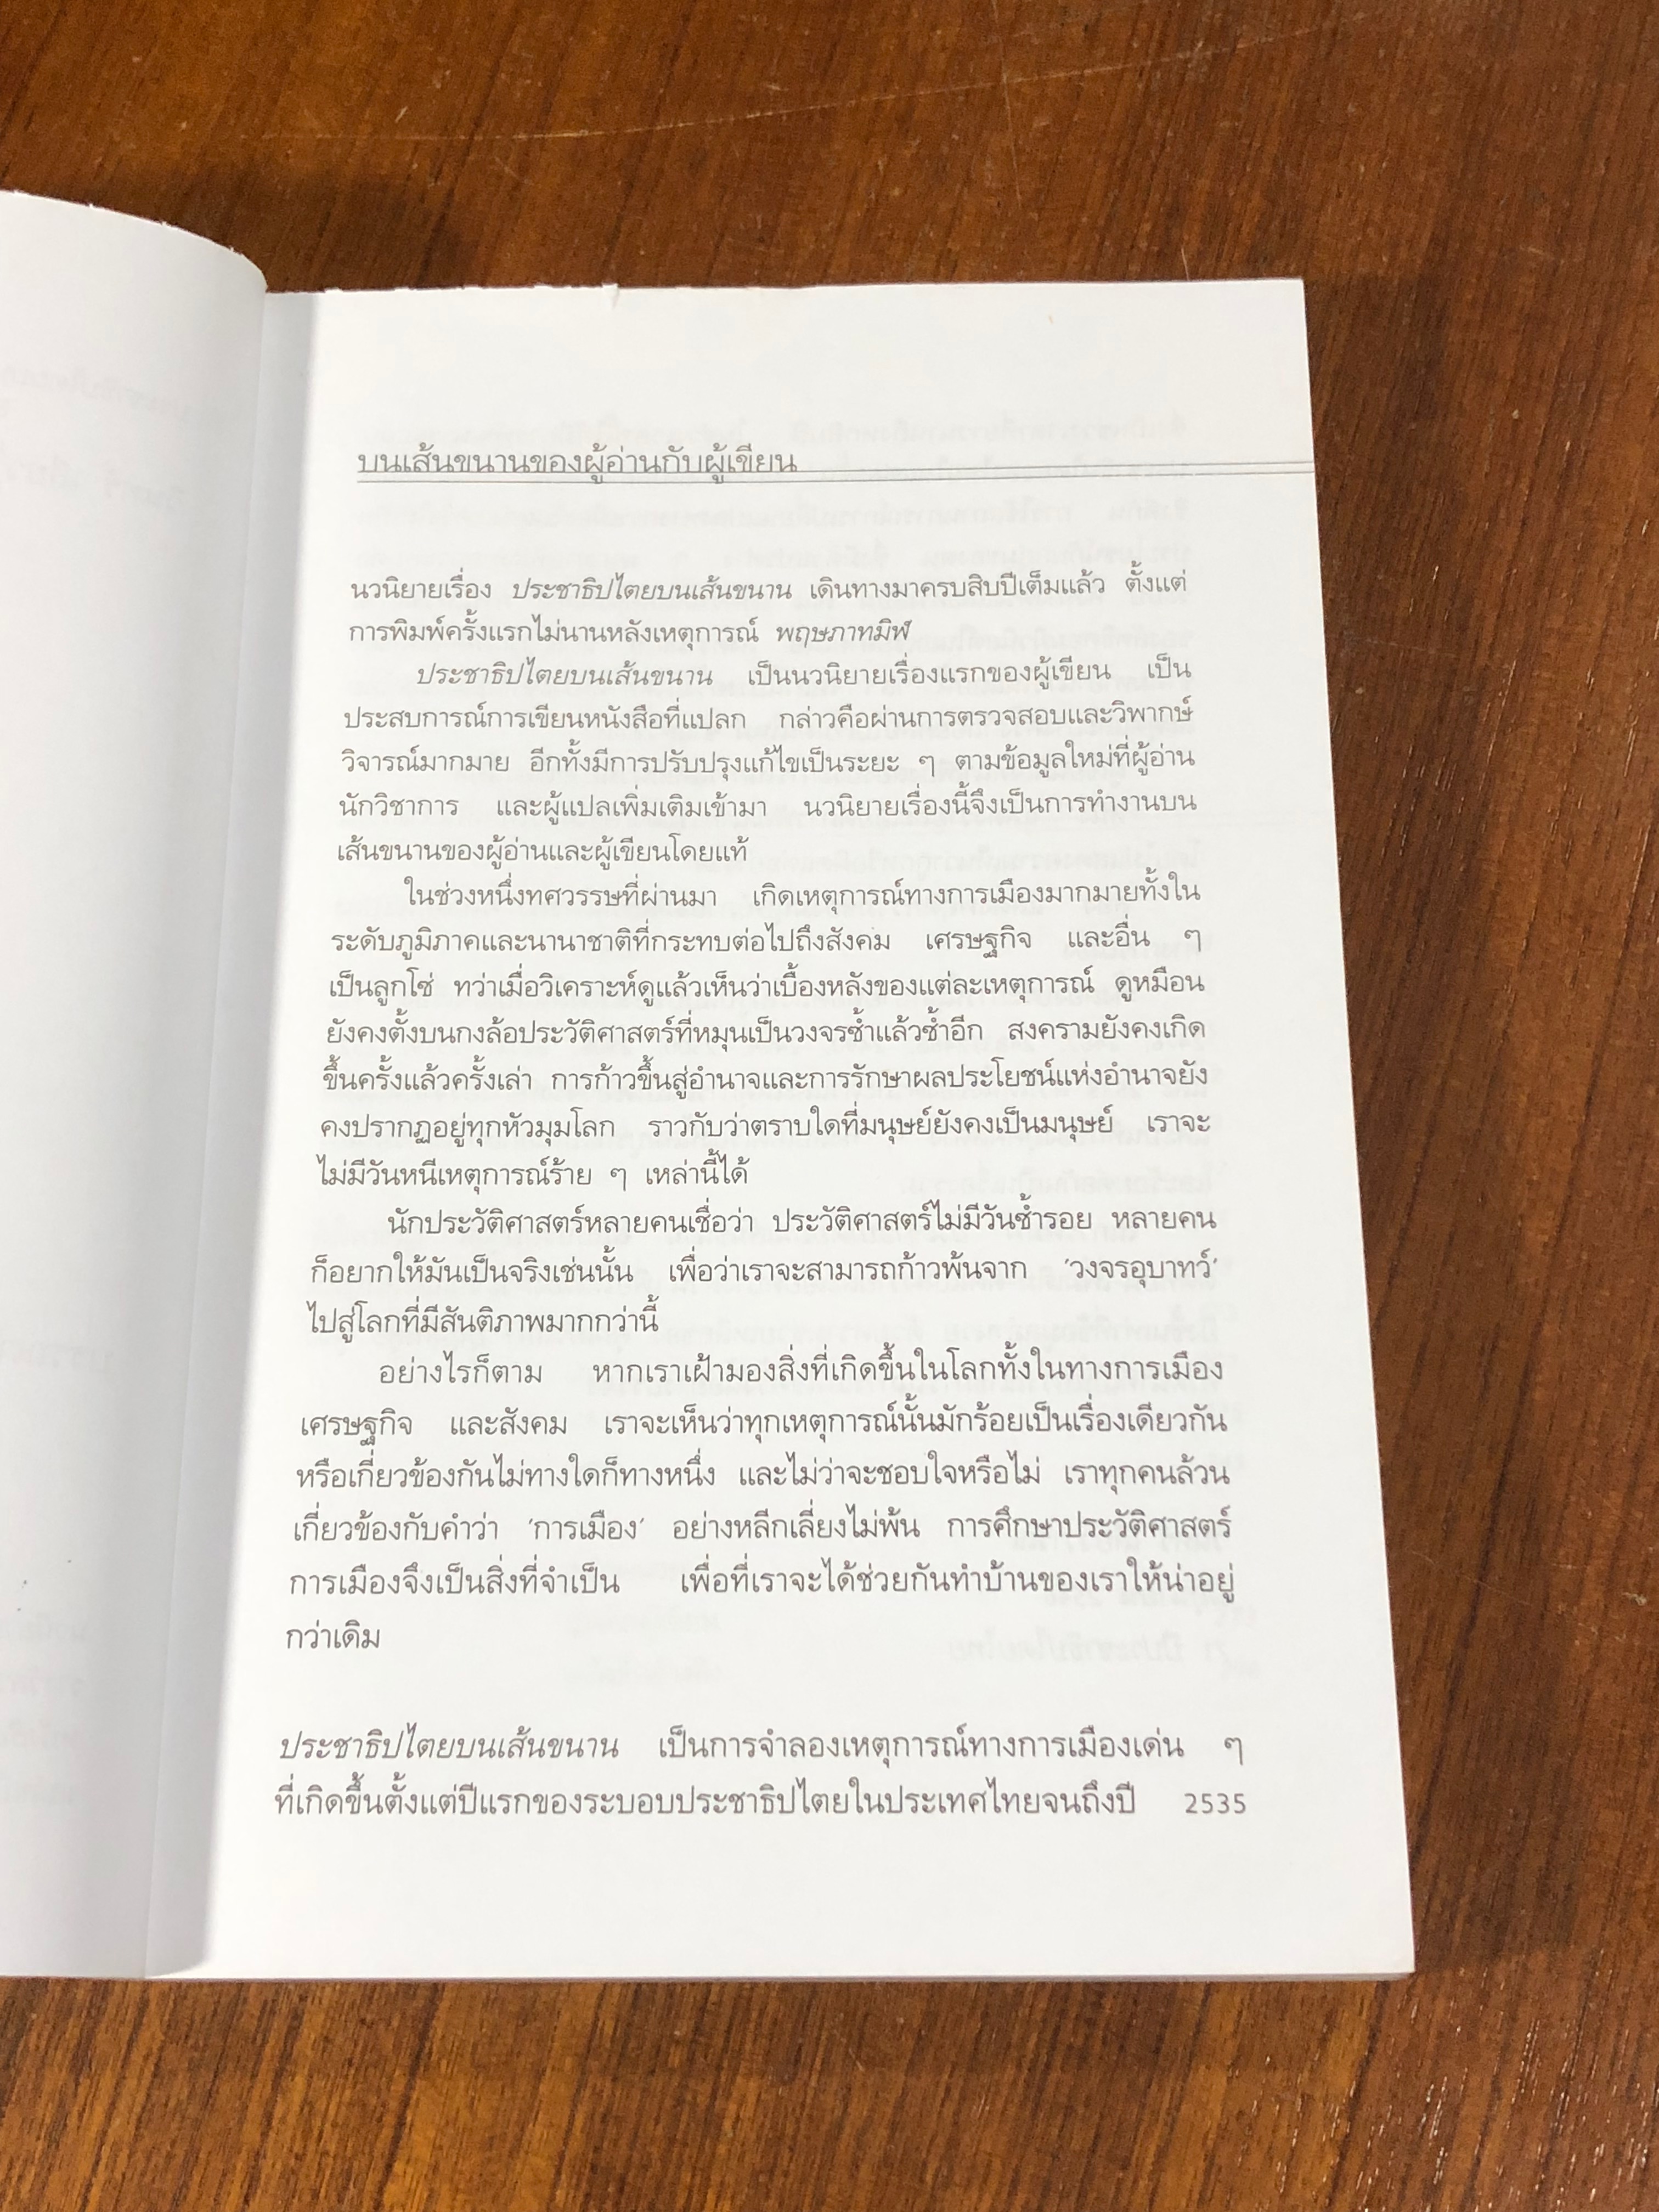 บนเส้นขนานของผู้อ่านกับผู้เขียน
นวนิยายเรื่อง ประชาธิปไตยบนเส้นขนาน เดินทางมาครบสิบปีเต็มแล้ว ตั้งแต่
การพิมพ์ครั้งแรกไม่นานหลังเหตุการณ์ พฤษภาทมิฬ
ประชาธิปไตยบนเส้นขนาน เป็นนวนิยายเรื่องแรกของผู้เขียน เป็น
ประสบการณ์การเขียนหนังสือที่แปลก กล่าวคือผ่านการตรวจสอบและวิพากษ์
วิจารณ์มากมาย อีกทั้งมีการปรับปรุงแก้ไขเป็นระยะ ๆ ตามข้อมูลใหม่ที่ผู้อ่าน
นักวิชาการ และผู้แปลเพิ่มเติมเข้ามา นวนิยายเรื่องนี้จึงเป็นการทำงานบน
เส้นขนานของผู้อ่านและผู้เขียนโดยแท้
ในช่วงหนึ่งทศวรรษที่ผ่านมา เกิดเหตุการณ์ทางการเมืองมากมายทั้งใน
ระดับภูมิภาคและนานาชาติที่กระทบต่อไปถึงสังคม เศรษฐกิจ และอื่น ๆ
เป็นลูกโซ่ ทว่าเมื่อวิเคราะห์ดูแล้วเห็นว่าเบื้องหลังของแต่ละเหตุการณ์ ดูหมือน
ยังคงตั้งบนกงล้อประวัติศาสตร์ที่หมุนเป็นวงจรซ้ำแล้วซ้ำอีก สงครามยังคงเกิด
ขึ้นครั้งแล้วครั้งเล่า การก้าวขึ้นสู่อำนาจและการรักษาผลประโยชน์แห่งอำนาจยัง
คงปรากฏอยู่ทุกหัวมุมโลก ราวกับว่าตราบใดที่มนุษย์ยังคงเป็นมนุษย์ เราจะ
ไม่มีวันหนีเหตุการณ์ร้าย ๆ เหล่านี้ได้
นักประวัติศาสตร์หลายคนเชื่อว่า ประวัติศาสตร์ไม่มีวันซ้ำรอย หลายคน
ก็อยากให้มันเป็นจริงเช่นนั้น เพื่อว่าเราจะสามารถก้าวพ้นจาก 'วงจรอุบาทว์'
ไปสู่โลกที่มีสันติภาพมากกว่านี้
อย่างไรก็ตาม หากเราเฝ้ามองสิ่งที่เกิดขึ้นในโลกทั้งในทางการเมือง
เศรษฐกิจ และสังคม เราจะเห็นว่าทุกเหตุการณ์นั้นมักร้อยเป็นเรื่องเดียวกัน
หรือเกี่ยวข้องกันไม่ทางใดก็ทางหนึ่ง และไม่ว่าจะชอบใจหรือไม่ เราทุกคนล้วน
เกี่ยวข้องกับคำว่า 'การเมือง' อย่างหลีกเลี่ยงไม่พ้น การศึกษาประวัติศาสตร์
การเมืองจึงเป็นสิ่งที่จำเป็น เพื่อที่เราจะได้ช่วยกันทำบ้านของเราให้น่าอยู่
กว่าเดิม
ประชาธิปไตยบนเส้นขนาน เป็นการจำลองเหตุการณ์ทางการเมืองเด่น ๆ
ที่เกิดขึ้นตั้งแต่ปีแรกของระบอบประชาธิปไตยในประเทศไทยจนถึงปี 2535